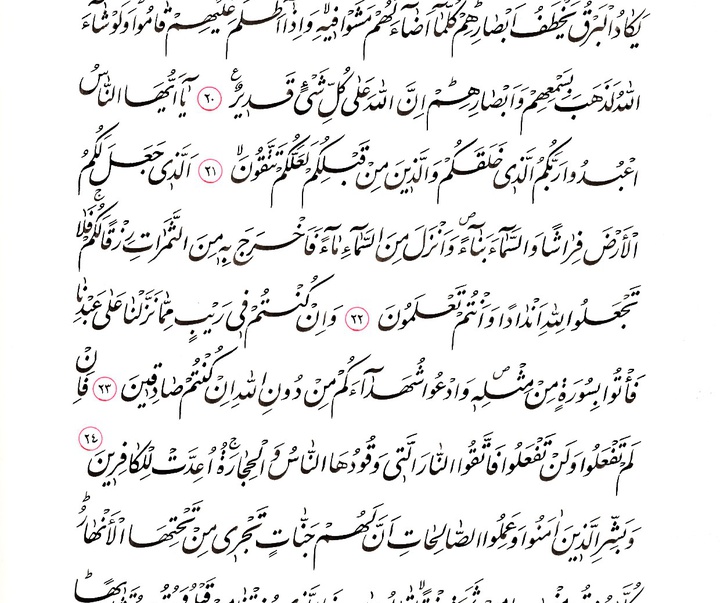 يَكَادُ الْبَرْقُ يَخْطَفُ اَبْصَارَهُمْ كُلَّمَٓا اَضَٓاءَ لَهُمْ مَشَوْا ف۪يهِ وَاِذَٓا اَظْلَمَ عَلَيْهِمْ قَامُوا وَلَوْ شَٓاءَ
اللّٰهُ لَذَهَبَ بِسَمْعِهِمْ وَاَبْصَارِهِمْ اِنَّ اللّٰهَ عَلٰى كُلِّ شَيْءٍ قَد۪يرٌ ﴿٢٠﴾ يَٓا اَيُّهَا النَّاسُ
اعْبُدُوا رَبَّكُمُ الَّذ۪ي خَلَقَكُمْ وَالَّذ۪ينَ مِنْ قَبْلِكُمْ لَعَلَّكُمْ تَتَّقُونَ ﴿٢١﴾ اَلَّذ۪ي جَعَلَ لَكُمُ
الْاَرْضَ فِرَاشًا وَالسَّمَٓاءَ بِنَٓاءً وَاَنْزَلَ مِنَ السَّمَٓاءِ مَٓاءً فَاَخْرَجَ بِه۪ مِنَ الثَّمَرَاتِ رِزْقًا لَكُمْ فَلَا
تَجْعَلُوا لِلّٰهِ اَنْدَادًا وَاَنْتُمْ تَعْلَمُونَ ﴿٢٢﴾ وَاِنْ كُنْتُمْ ف۪ي رَيْبٍ مِمَّا نَزَّلْنَا عَلٰى عَبْدِنَا
فَأْتُوا بِسُورَةٍ مِنْ مِثْلِه۪ وَادْعُوا شُهَدَٓاءَكُمْ مِنْ دُونِ اللّٰهِ اِنْ كُنْتُمْ صَادِق۪ينَ ﴿٢٣﴾ فَاِنْ
لَمْ تَفْعَلُوا وَلَنْ تَفْعَلُوا فَاتَّقُوا النَّارَ الَّت۪ي وَقُودُهَا النَّاسُ وَالْحِجَارَةُ اُعِدَّتْ لِلْكَافِر۪ينَ ﴿٢٤﴾
وَبَشِّرِ الَّذ۪ينَ اٰمَنُوا وَعَمِلُوا الصَّالِحَاتِ اَنَّ لَهُمْ جَنَّاتٍ تَجْر۪ي مِنْ تَحْتِهَا الْاَنْهَارُ